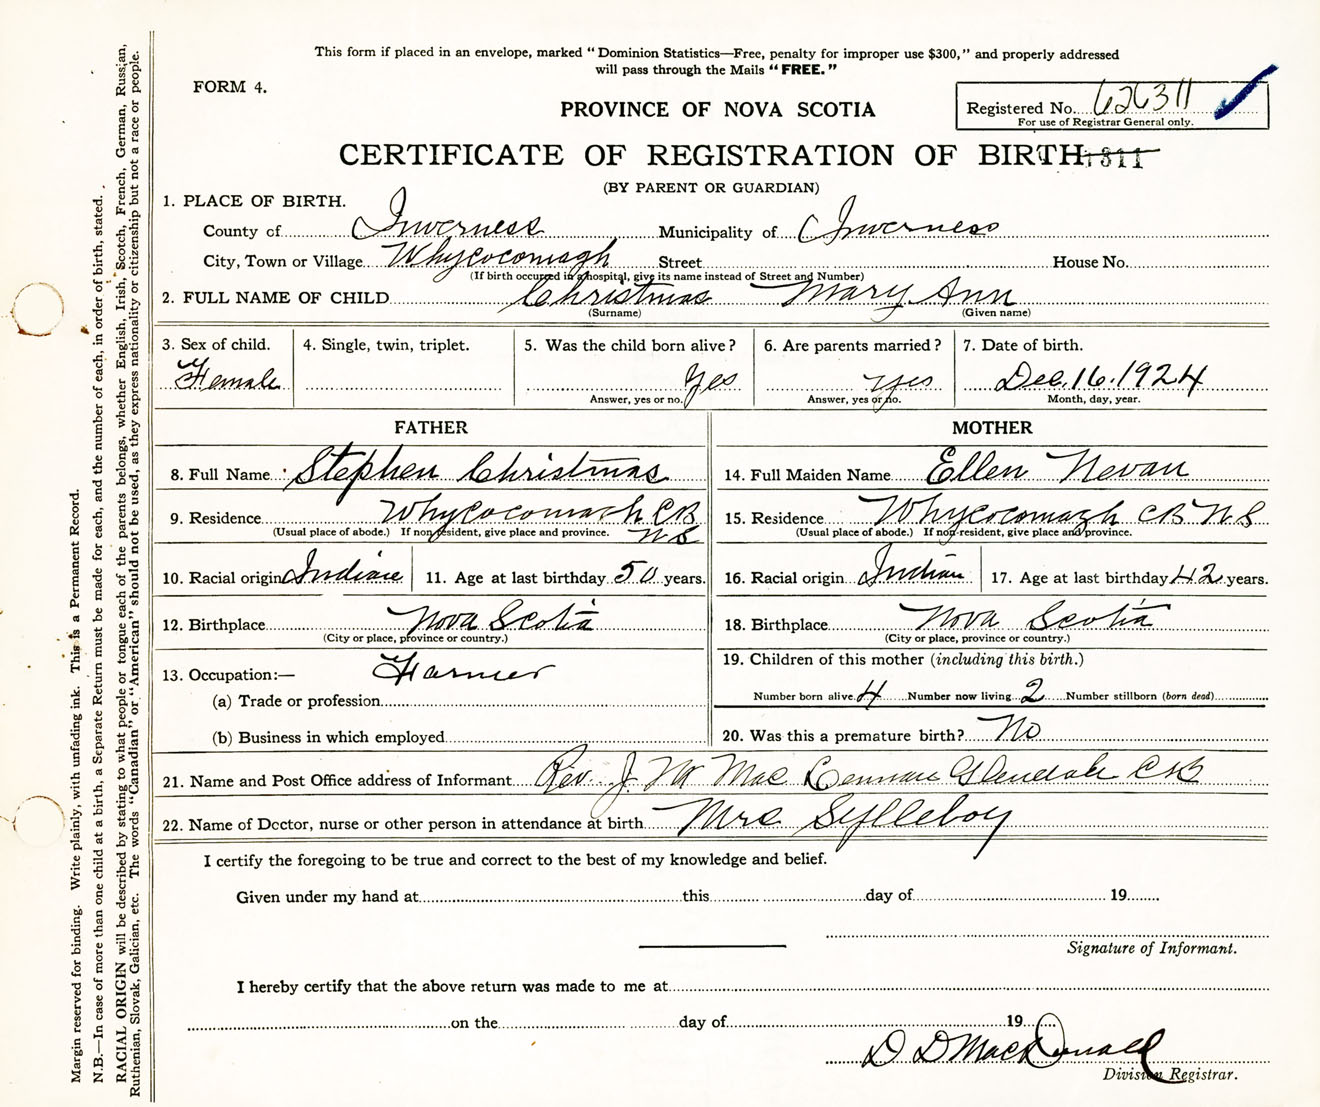 This form if placed in an envelope, marked "Dominion Statistics—Free, penalty for improper use $300," and properly addressed
will pass through the Mails "FREE."
FORM 4.
Registered No. 626311
For use of Registrar General only.
PROVINCE OF NOVA SCOTIA
CERTIFICATE OF REGISTRATION OF BIRTH
(BY PARENT OR GUARDIAN)
1. PLACE OF BIRTH.
County of Inverness Municipality of Inverness
City, Town or Village Whycocomagh Street House No.
(If birth occurred in a hospital, give its name instead of Street and Number)
2. FULL NAME OF CHILD Christmas Mary Ann
(Surname) (Given name)
3. Sex of child. 4. Single, twin, triplet. 5. Was the child born alive? 6. Are parents married? 7. Date of birth.
Female Yes Yes Dec. 16. 1924
Answer, yes or no. Answer, yes or no. Month, day, year.
FATHER MOTHER
8. Full Name Stephen Christmas 14. Full Maiden Name Ellen Nevan
9. Residence Whycocomagh CB NS 15. Residence Whycocomagh CB NS
(Usual place of abode.) If non-resident, give place and province. (Usual place of abode.) If non-resident, give place and province.
10. Racial origin Indian 11. Age at last birthday 50 years. 16. Racial origin Indian 17. Age at last birthday 42 years.
12. Birthplace Nova Scotia 18. Birthplace Nova Scotia
(City or place, province or country.) (City or place, province or country.)
13. Occupation:— Farmer 19. Children of this mother (including this birth.)
(a) Trade or profession Number born alive 4 Number now living 2 Number stillborn (born dead)
(b) Business in which employed 20. Was this a premature birth? No
21. Name and Post Office address of Informant Rev. J. Mac Glendale CB
22. Name of Doctor, nurse or other person in attendance at birth Mrs Sylleboy
I certify the foregoing to be true and correct to the best of my knowledge and belief.
Given under my hand at this day of 19
Signature of Informant.
I hereby certify that the above return was made to me at
on the day of 19
D D MacDonald
Division Registrar.
Margin reserved for binding. Write plainly, with unfading ink. This is a Permanent Record.
N.B.—In case of more than one child at a birth, a Separate Return must be made for each, and the number of each, in order of birth, stated.
RACIAL ORIGIN will be described by stating to what people or tongue each of the parents belongs, whether English, Irish, Scotch, French, German, Russian,
Ruthenian, Slovak, Galician, etc. The words "Canadian" or "American" should not be used, as they express nationality or citizenship but not a race or people.